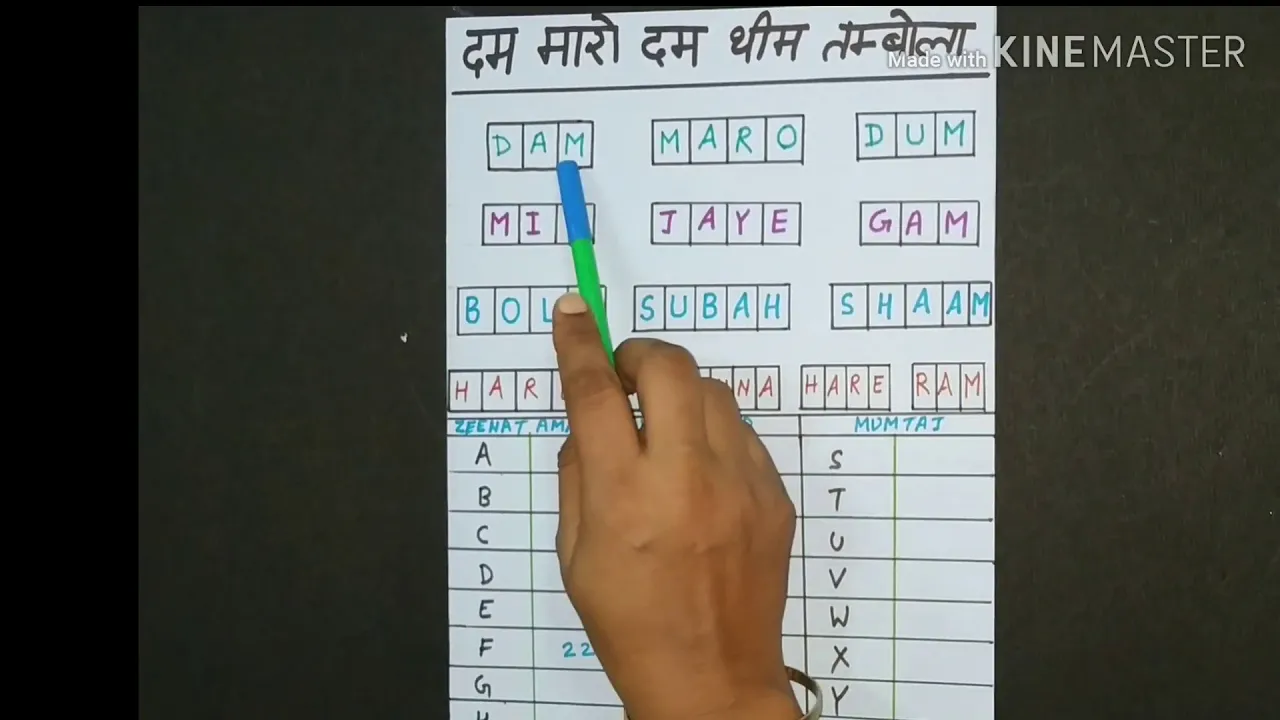 दम मारो दम थीम तम्बोला
Made with KINEMASTER
DAM MARO DUM
MI JAYE GAM
BOL SUBAH SHAAM
HAR NA HARE RAM
ZEENAT MUMTAJ
A S
B T
C U
D V
E W
F 22 X
G Y